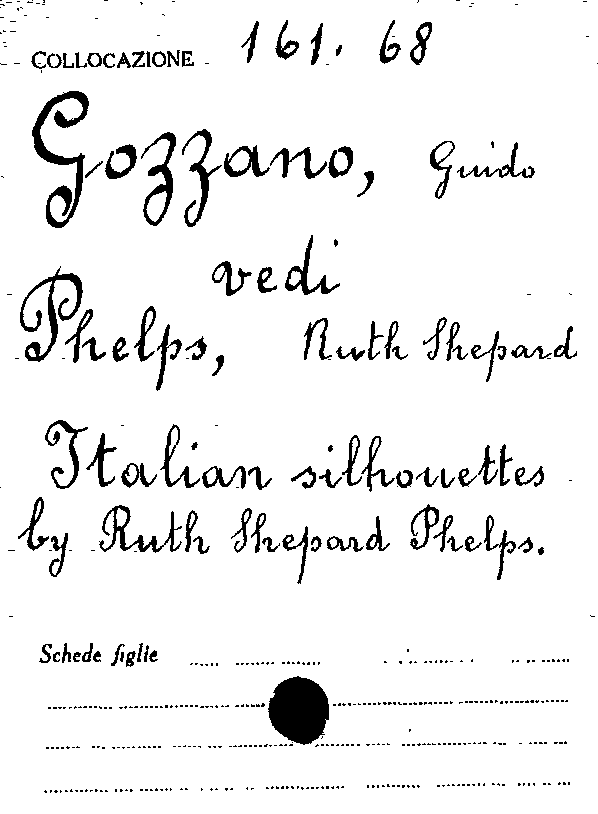 COLLOCAZIONE 161. 68
Gozzano, Guido
vedi
Phelps, Ruth Shepard
Italian silhouettes
by Ruth Shepard Phelps.
Schede figlie